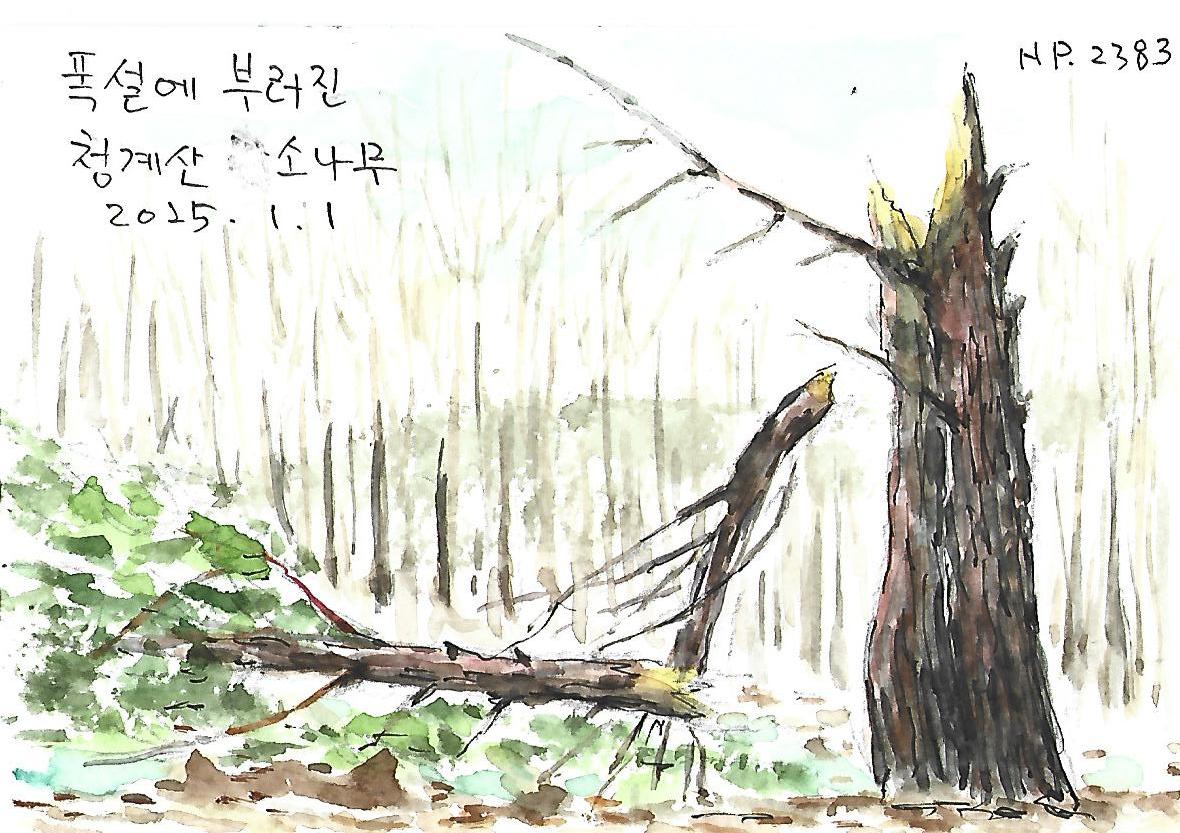 폭설에 부러진
청계산 소나무
2025. 1. 1
NP. 2383